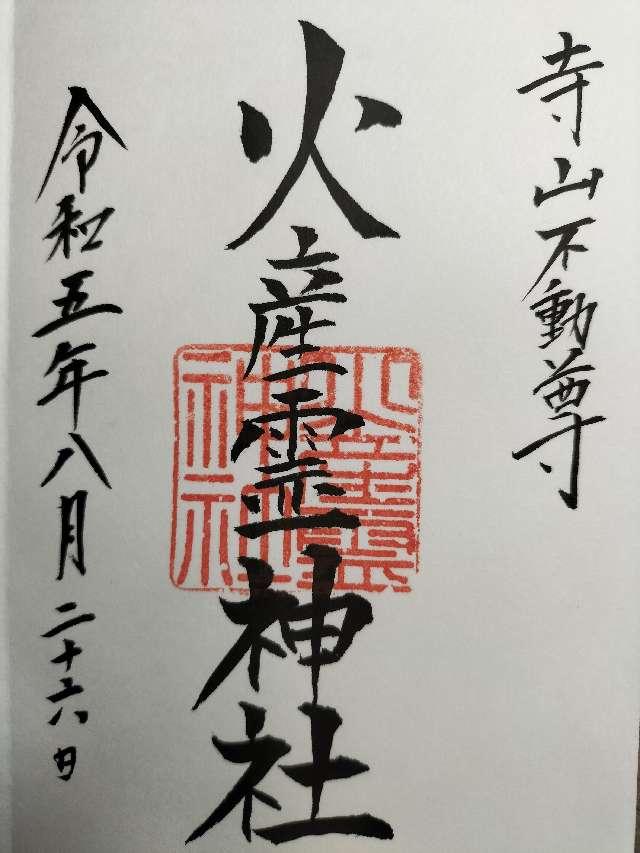 寺山不動尊
火産霊神社
火産霊神社
令和五年八月二十六日